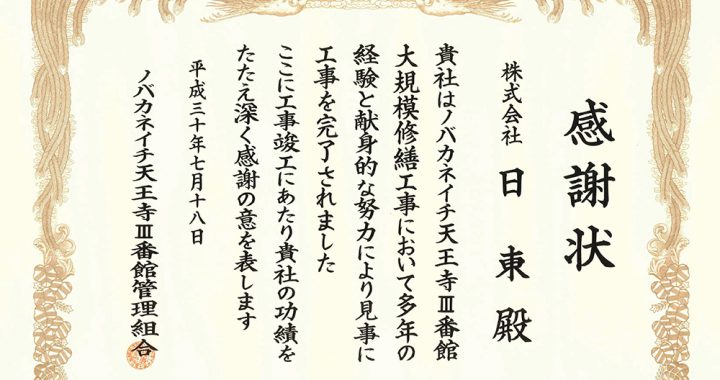 感謝状
株式会社 日東殿
貴社はノバカネイチ天王寺Ⅲ番館
大規模修繕工事において多年の
経験と献身的な努力により見事に
工事を完了されました
ここに工事竣工にあたり貴社の功績を
たたえ深く感謝の意を表します
平成三十年七月十八日
ノバカネイチ天王寺Ⅲ番館管理組合